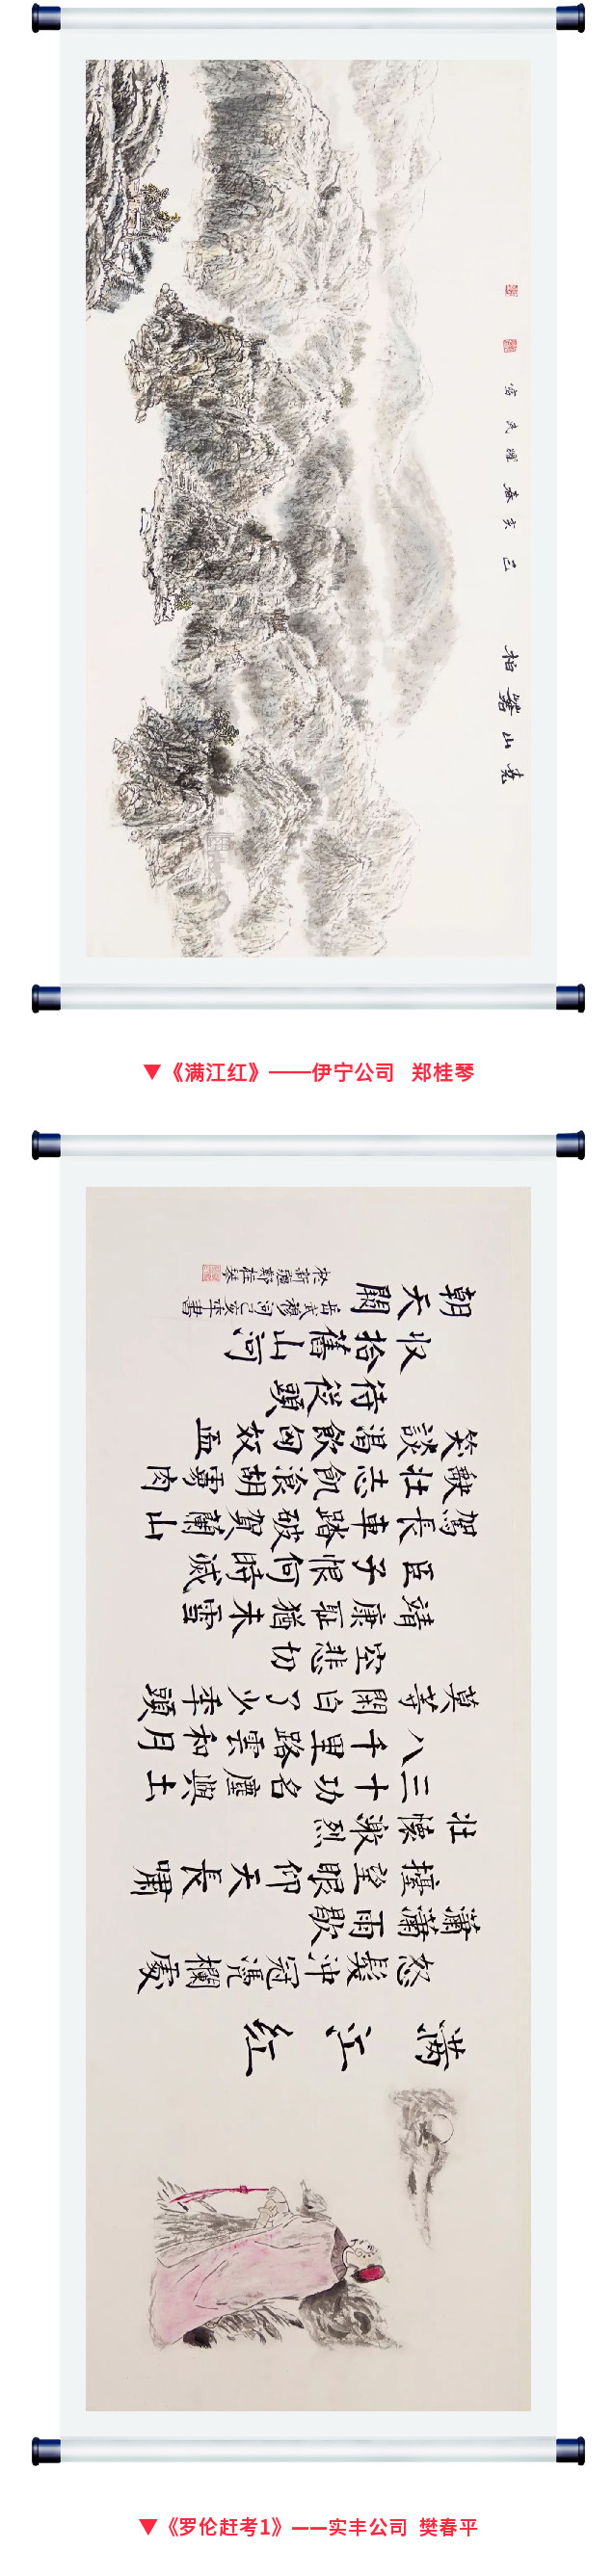 山
柏
己亥春
耀民
▼《满江红》——伊宁公司 郑桂琴
滿江紅
怒髮沖冠凴欄處
瀟瀟雨歇
擡望眼仰天長嘯
壯懷激烈
三十功名塵與土
八千里路雲和月
莫等閑白了少年頭
空悲切
靖康耻猶未雪
臣子恨何時滅
駕長車踏破賀蘭山
缺壯志飢飡胡虜肉
笑談渴飲匈奴血
待從頭
收拾舊山河
朝天闕
岳武穆詞己亥年書
於新疆鄭桂琴
▼《罗伦赶考1》——实丰公司 樊春平